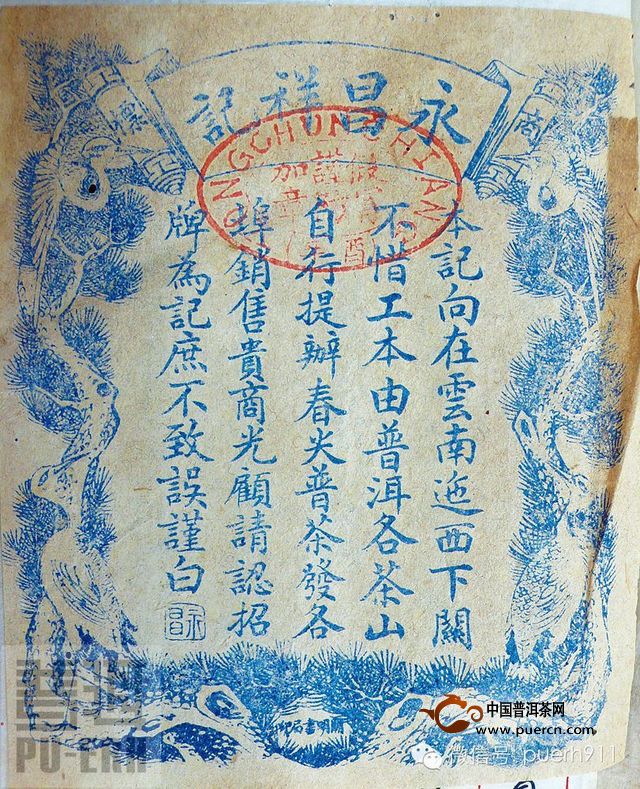 商標
永昌祥記
YONGCHUNGHSIANG
本記向在雲南迤西下關
不惜工本由普洱各茶山
自行提辦春尖普茶發各
埠銷售貴商光顧請認招
牌為記庶不致誤謹白
永昌
開明書局印
普洱
PU-ERH
中国普洱茶网
www.puercn.com
微信号: puerh911